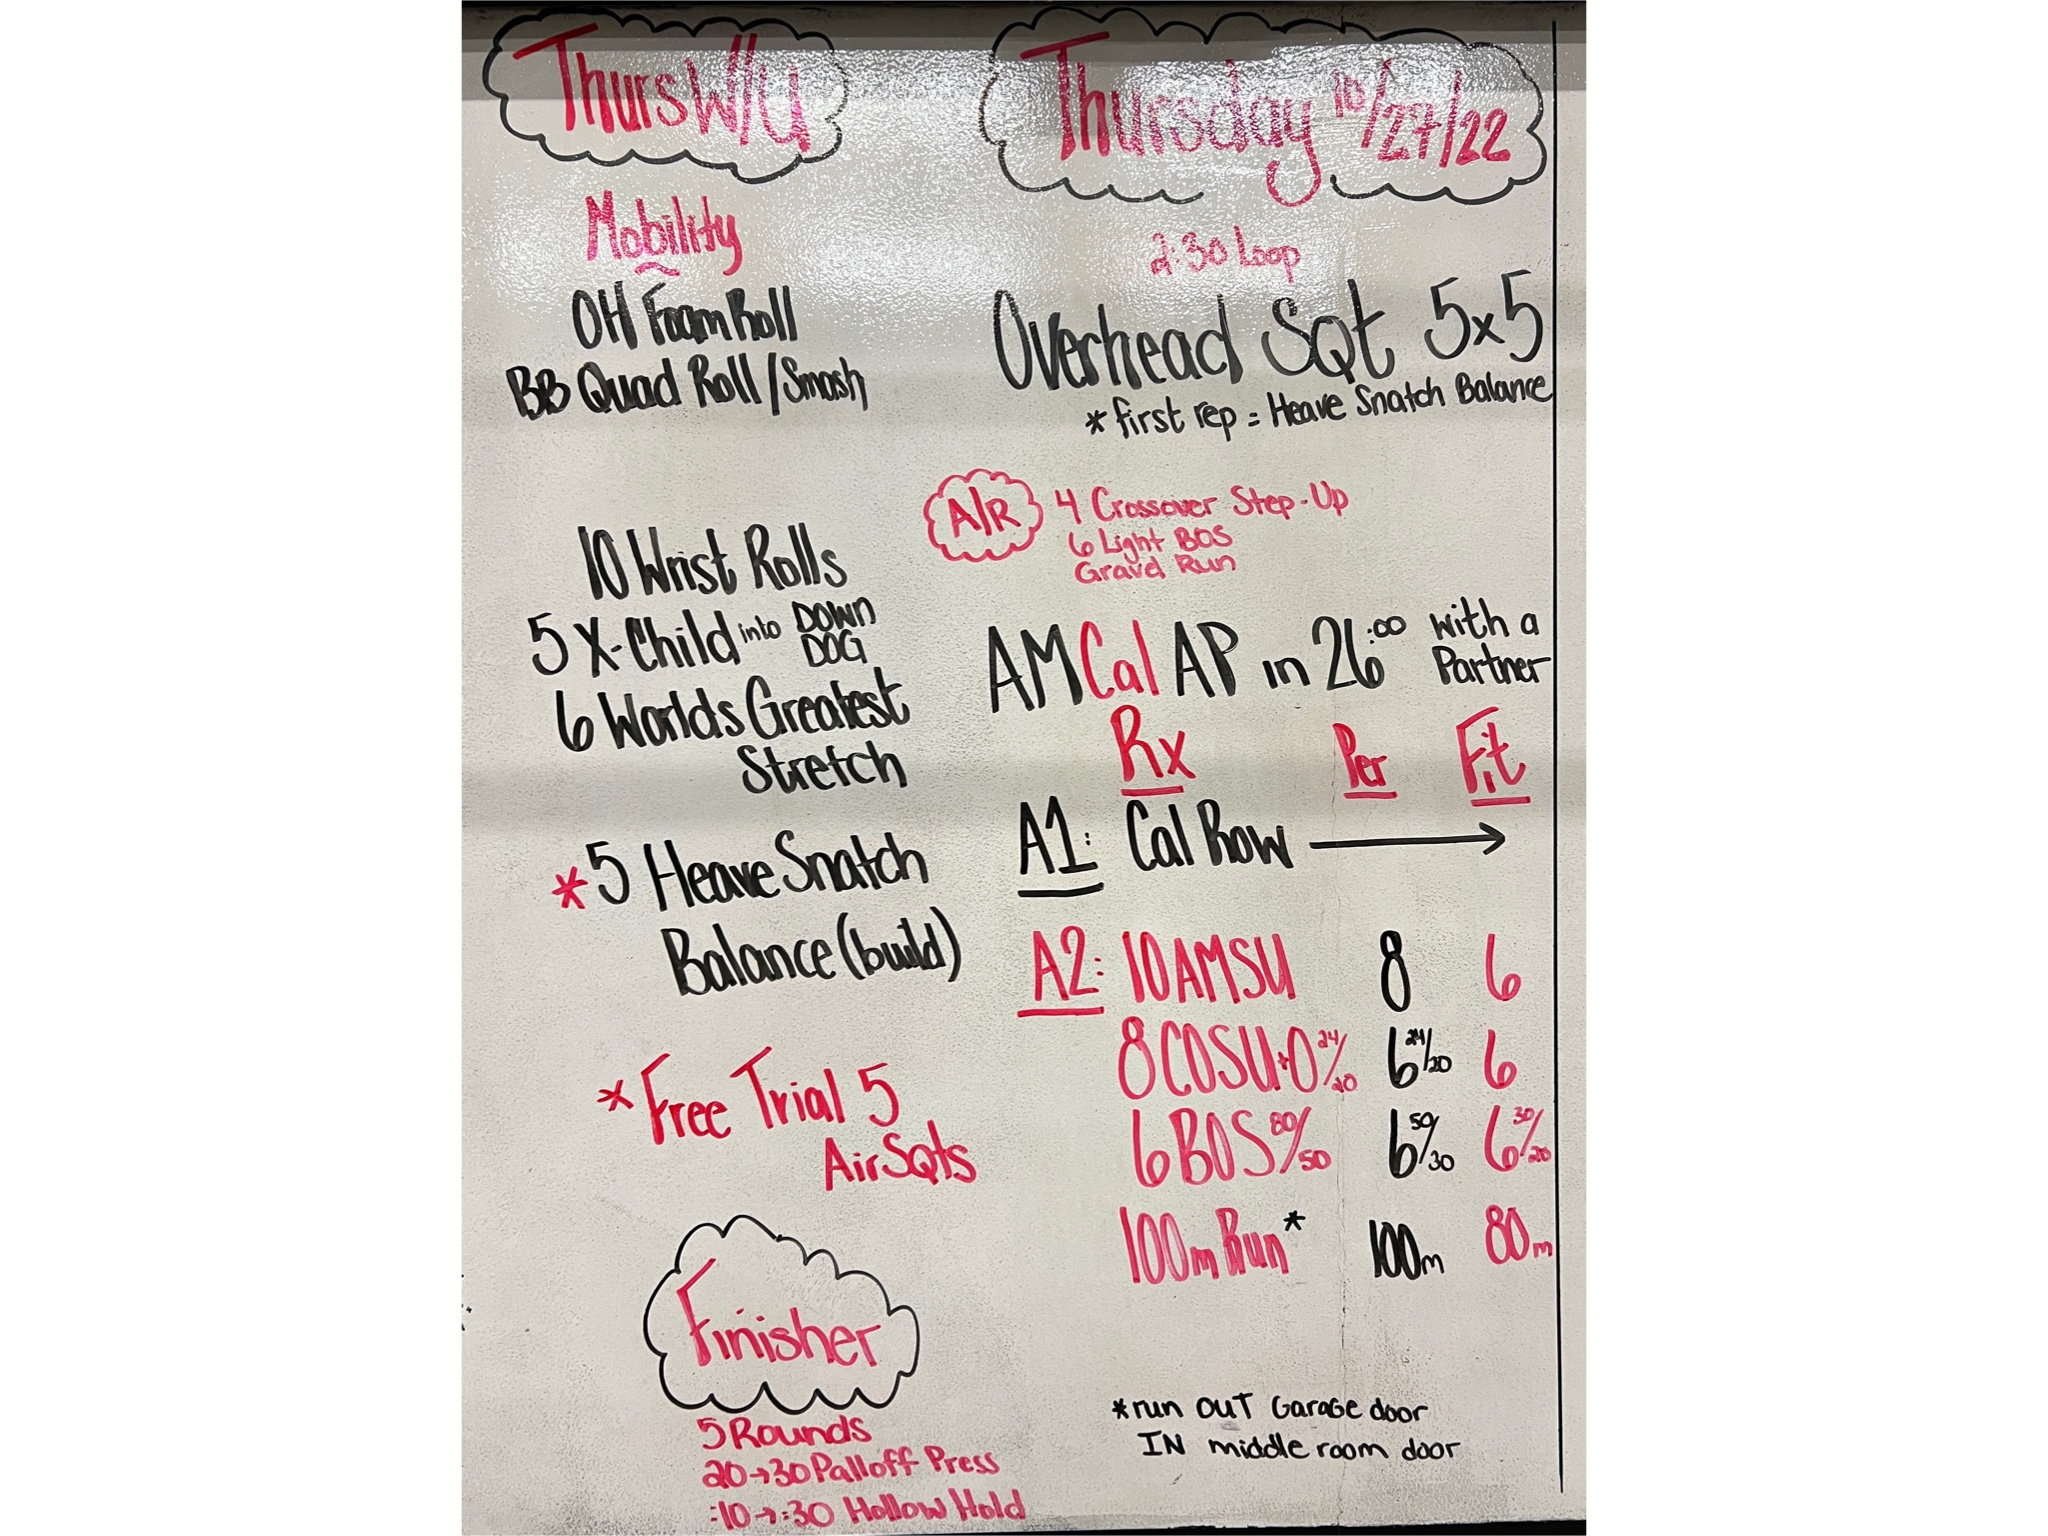 Thurs W/U
Mobility
OH Foam Roll
BB Quad Roll/Smash
10 Wrist Rolls
5 X-Child into DOWN DOG
6 Worlds Greatest
Stretch
*5 Heave Snatch
Balance (build)
*Free Trial 5
Air Sqts
Finisher
5 Rounds
20→30 Palloff Press
:10→:30 Hollow Hold
Thursday 10/27/22
2:30 Loop
Overhead Sqt 5x5
*first rep = Heave Snatch Balance
A/R 4 Crossover Step-Up
6 Light BOS
Gravel Run
AMCalAP in 26:00 with a Partner
Rx Per Fit
A1: Cal Row →
A2: 10 AMSU 8 6
8 COSU+O 24/20 6 24/20 6
6 BOS 80/50 6 50/30 6 30/20
100m Run* 100m 80m
*run OUT Garage door
IN middle room door